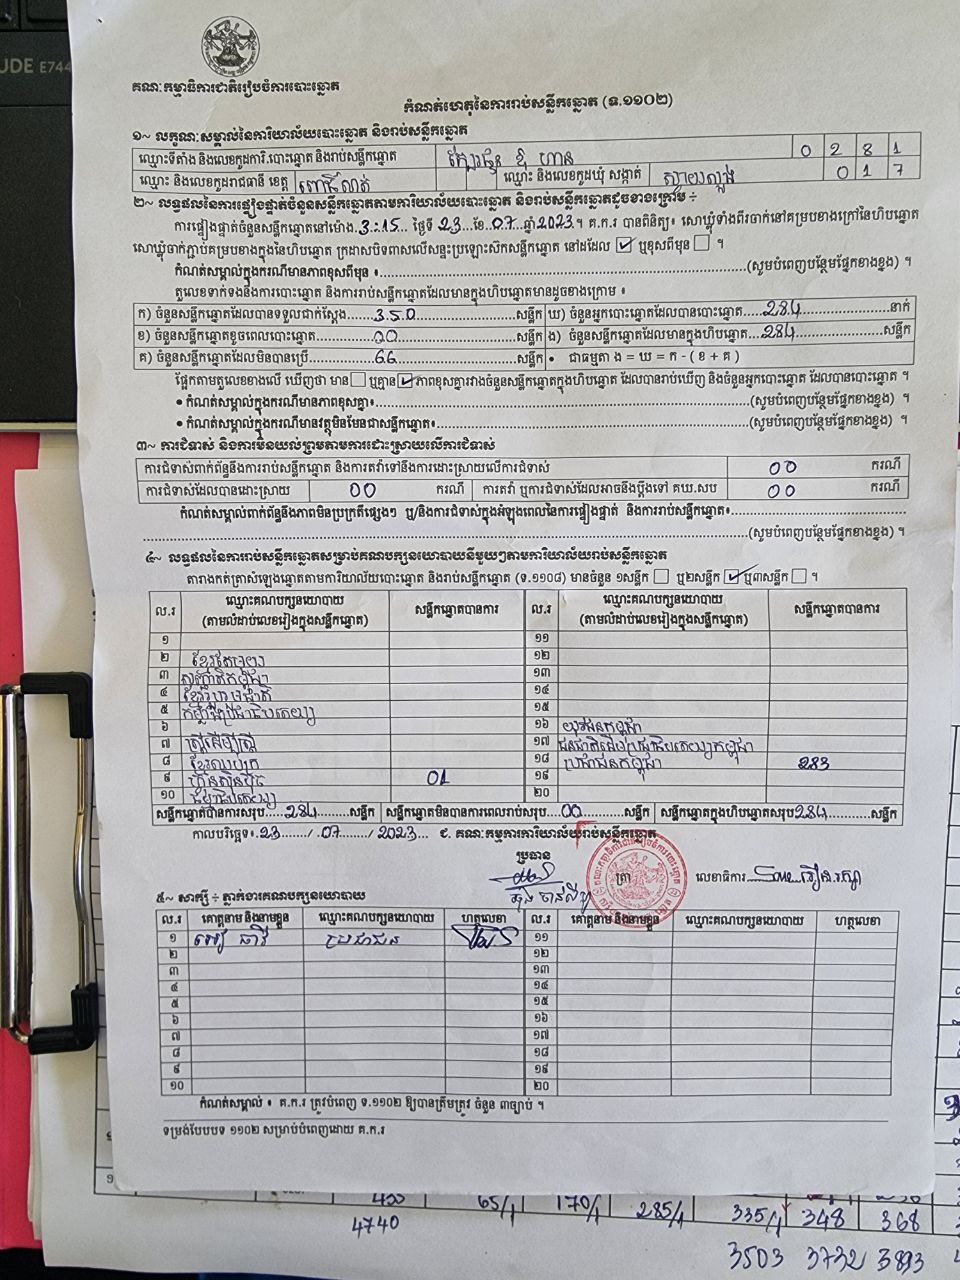 UDE E744
គណៈកម្មាធិការជាតិរៀបចំការបោះឆ្នោត
កំណត់ហេតុនៃការរាប់សន្លឹកឆ្នោត (ទ.១១០២)
១~ លក្ខណៈសម្គាល់នៃការិយាល័យបោះឆ្នោត និងរាប់សន្លឹកឆ្នោត
ឈ្មោះទីតាំង និងលេខកូដការិ.បោះឆ្នោត និងរាប់សន្លឹកឆ្នោត 0 2 8 1
ឈ្មោះ និងលេខកូដរាជធានី ខេត្ត ឈ្មោះ និងលេខកូដឃុំ សង្កាត់ 0 1 7
២~ លទ្ធផលនៃការផ្ទៀងផ្ទាត់ចំនួនសន្លឹកឆ្នោតតាមការិយាល័យបោះឆ្នោត និងរាប់សន្លឹកឆ្នោតដូចខាងក្រោម ÷
ការផ្ទៀងផ្ទាត់ចំនួនសន្លឹកឆ្នោតនៅម៉ោង. 3:15 ថ្ងៃទី 23 ខែ. 07 ឆ្នាំ 2023។ គ.ក.រ បានពិនិត្យ៖ សោឃ្លុំទាំងពីរចាក់នៅគម្របខាងក្រៅនៃហិបឆ្នោត
សោឃ្លុំចាក់ភ្ជាប់គម្របខាងក្នុងនៃហិបឆ្នោត ក្រដាសបិទពាសលើសន្ទះប្រឡោះស៊កសន្លឹកឆ្នោត នៅដដែល ☑ ឬខុសពីមុន ☐ ។
កំណត់សម្គាល់ក្នុងករណីមានភាពខុសពីមុន ៖ (សូមបំពេញបន្ថែមផ្នែកខាងខ្នង) ។
តួលេខទាក់ទងនឹងការបោះឆ្នោត និងការរាប់សន្លឹកឆ្នោតដែលមានក្នុងហិបឆ្នោតមានដូចខាងក្រោម ៖
ក) ចំនួនសន្លឹកឆ្នោតដែលបានទទួលជាក់ស្តែង 350 សន្លឹក ឃ) ចំនួនអ្នកបោះឆ្នោតដែលបានបោះឆ្នោត 284 នាក់
ខ) ចំនួនសន្លឹកឆ្នោតខូចពេលបោះឆ្នោត 00 សន្លឹក ង) ចំនួនសន្លឹកឆ្នោតដែលមានក្នុងហិបឆ្នោត 284 សន្លឹក
គ) ចំនួនសន្លឹកឆ្នោតដែលមិនបានប្រើ 66 សន្លឹក • ជាធម្មតា ង = ឃ = ក - ( ខ + គ )
ផ្អែកតាមតួលេខខាងលើ ឃើញថា មាន ☐ ឬគ្មាន ☑ ភាពខុសគ្នារវាងចំនួនសន្លឹកឆ្នោតក្នុងហិបឆ្នោត ដែលបានរាប់ឃើញ និងចំនួនអ្នកបោះឆ្នោត ដែលបានបោះឆ្នោត ។
• កំណត់សម្គាល់ក្នុងករណីមានភាពខុសគ្នា៖ (សូមបំពេញបន្ថែមផ្នែកខាងខ្នង) ។
• កំណត់សម្គាល់ក្នុងករណីមានវត្ថុមិនមែនជាសន្លឹកឆ្នោត៖ (សូមបំពេញបន្ថែមផ្នែកខាងខ្នង) ។
៣~ ការជំទាស់ និងការមិនយល់ព្រមតាមការដោះស្រាយលើការជំទាស់
ការជំទាស់ពាក់ព័ន្ធនឹងការរាប់សន្លឹកឆ្នោត និងការតវ៉ាទៅនឹងការដោះស្រាយលើការជំទាស់ 00 ករណី
ការជំទាស់ដែលបានដោះស្រាយ 00 ករណី ការតវ៉ា ឬការជំទាស់ដែលអាចនឹងប្តឹងទៅ គឃ.សប 00 ករណី
កំណត់សម្គាល់ពាក់ព័ន្ធនឹងភាពមិនប្រក្រតីផ្សេងៗ ឬ/និងការជំទាស់ក្នុងអំឡុងពេលនៃការផ្ទៀងផ្ទាត់ និងការរាប់សន្លឹកឆ្នោត៖
(សូមបំពេញបន្ថែមផ្នែកខាងខ្នង) ។
៤~ លទ្ធផលនៃការរាប់សន្លឹកឆ្នោតសម្រាប់គណបក្សនយោបាយនីមួយៗតាមការិយាល័យរាប់សន្លឹកឆ្នោត
តារាងកត់ត្រាសំឡេងឆ្នោតតាមការិយាល័យបោះឆ្នោត និងរាប់សន្លឹកឆ្នោត (ទ.១១០៨) មានចំនួន ១សន្លឹក ☐ ឬ២សន្លឹក ☑ ឬ៣សន្លឹក ☐ ។
ល.រ ឈ្មោះគណបក្សនយោបាយ សន្លឹកឆ្នោតបានការ ល.រ ឈ្មោះគណបក្សនយោបាយ សន្លឹកឆ្នោតបានការ
(តាមលំដាប់លេខរៀងក្នុងសន្លឹកឆ្នោត) (តាមលំដាប់លេខរៀងក្នុងសន្លឹកឆ្នោត)
១ ១១
២ ខ្មែរតែមួយ ១២
៣ សញ្ជាតិកម្ពុជា ១៣
៤ ខ្មែររួបរួមជាតិ ១៤
៥ កម្លាំងប្រជាធិបតេយ្យ ១៥
៦ ១៦ យុវជនកម្ពុជា
៧ ស្ត្រីដើម្បីស្ត្រី ១៧ ជនជាតិដើមប្រជាធិបតេយ្យកម្ពុជា
៨ ១៨ ប្រជាជនកម្ពុជា 283
៩ ហ៊្វុនស៊ិនប៉ិច 01 ១៩
១០ ២០
សន្លឹកឆ្នោតបានការសរុប 284 សន្លឹក សន្លឹកឆ្នោតមិនបានការពេលរាប់សរុប 00 សន្លឹក សន្លឹកឆ្នោតក្នុងហិបឆ្នោតសរុប 284 សន្លឹក
កាលបរិច្ឆេទ៖ 23 / 07 / 2023 ជ. គណៈកម្មការការិយាល័យរាប់សន្លឹកឆ្នោត
ប្រធាន
ត្រា លេខាធិការ
៥~ សាក្សី ÷ ភ្នាក់ងារគណបក្សនយោបាយ
ល.រ គោត្តនាម និងនាមខ្លួន ឈ្មោះគណបក្សនយោបាយ ហត្ថលេខា ល.រ គោត្តនាម និងនាមខ្លួន ឈ្មោះគណបក្សនយោបាយ ហត្ថលេខា
១ ប្រជាជន ១១
២ ១២
៣ ១៣
៤ ១៤
៥ ១៥
៦ ១៦
៧ ១៧
៨ ១៨
៩ ១៩
១០ ២០
កំណត់សម្គាល់ ៖ គ.ក.រ ត្រូវបំពេញ ទ.១១០២ ឱ្យបានត្រឹមត្រូវ ចំនួន ៣ច្បាប់ ។
ទម្រង់បែបបទ ១១០២ សម្រាប់បំពេញដោយ គ.ក.រ
65/1 170/1 285/1 335/1 348 368
4740
3503 3732 3893